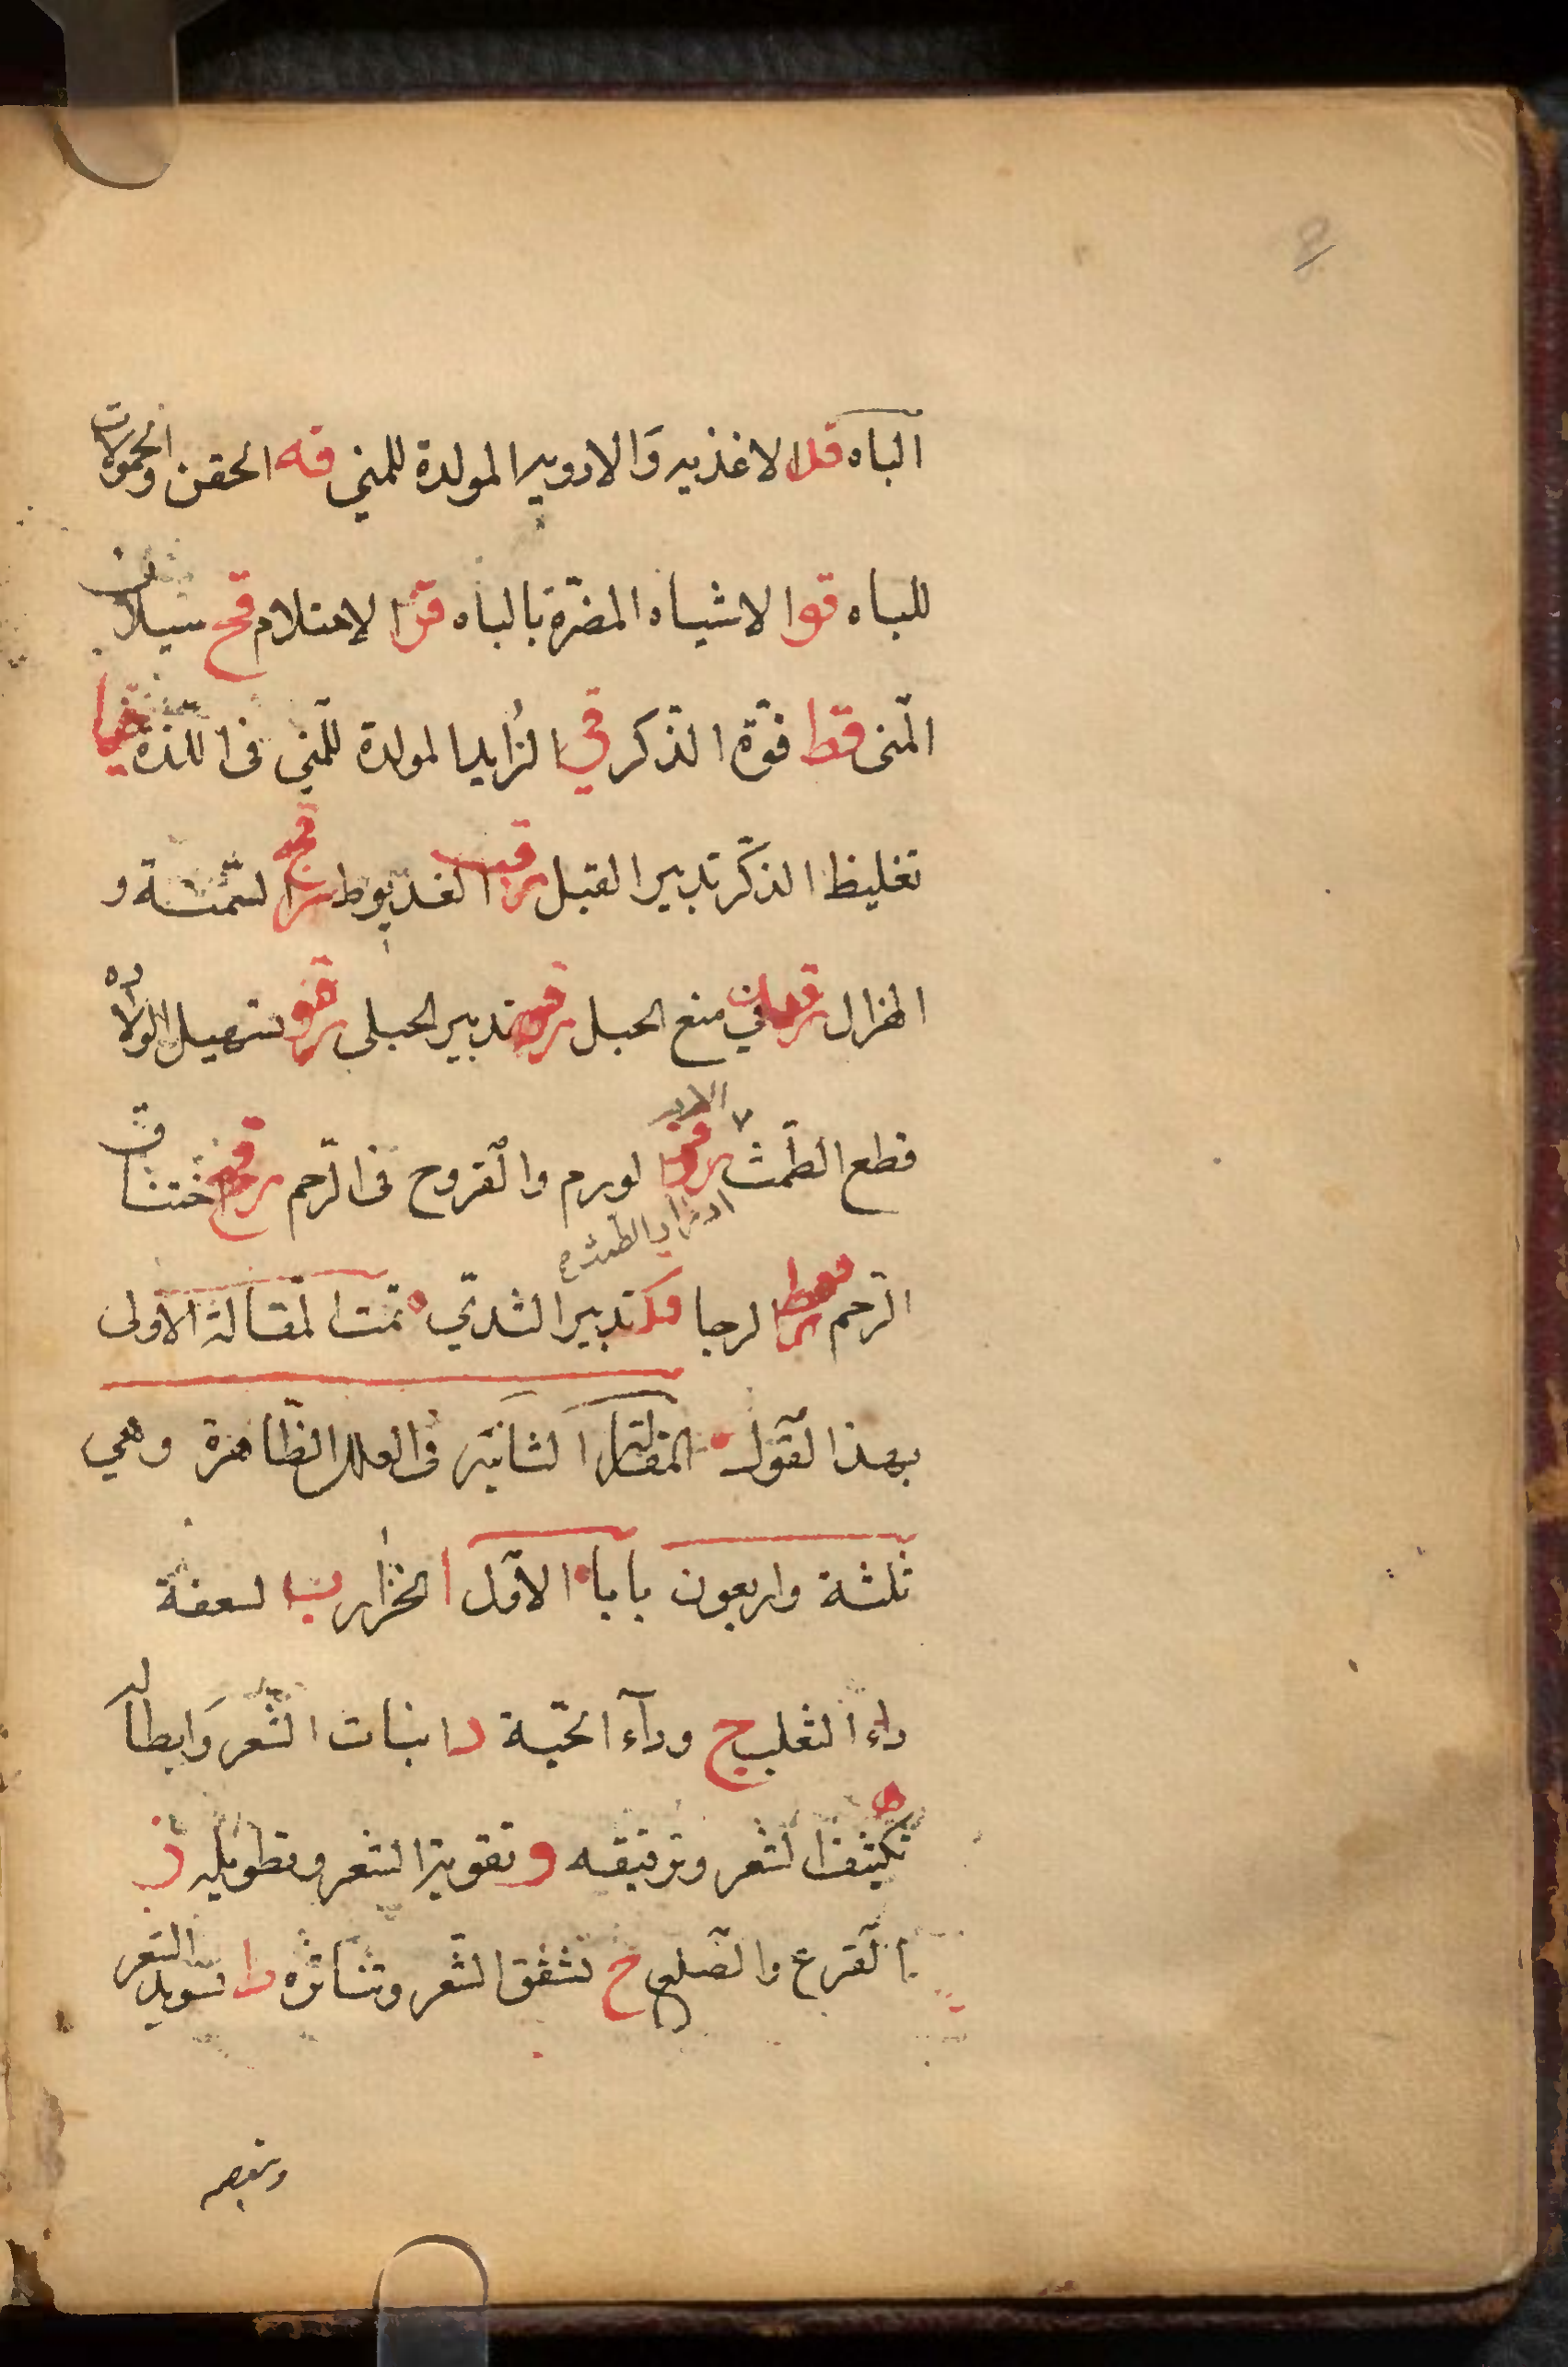 الباه قد الاغذيه والادويه المولدة للمني قه الحقن والحمولات
للباه قوا الاشياء المضرّة بالباه قز الاحتلام قح سيلان
المنى قط قوّة الذكر قي الزايد المولدة للمني فى اللذة قيا
تغليظ الذكر تدبير القبل قيب العذيوط قيج السمنة و
الهزال في منع الحبل تدبير الحبلى تسهيل الولاده
قطع الطمث الورم والقروح فى الرّحم اختناق
ادرار الطمث
الرّحم الرجا قك تدبير الثديّ تمت المقالة الاولى
بهذا القول المقالة الثانيه فى العلل الظاهرة وهي
ثلثة واربعون بابا الاوّل ا الحزاز ب السعفة
داء الثعلب ج وداء الحيّة د انبات الشعر وابطاله
ه تكثيف الشعر وترقيقه و تقوية الشعر وتطويله ز
القرع والصلع ح تشقق الشعر وتناثره ط تسويد الشعر